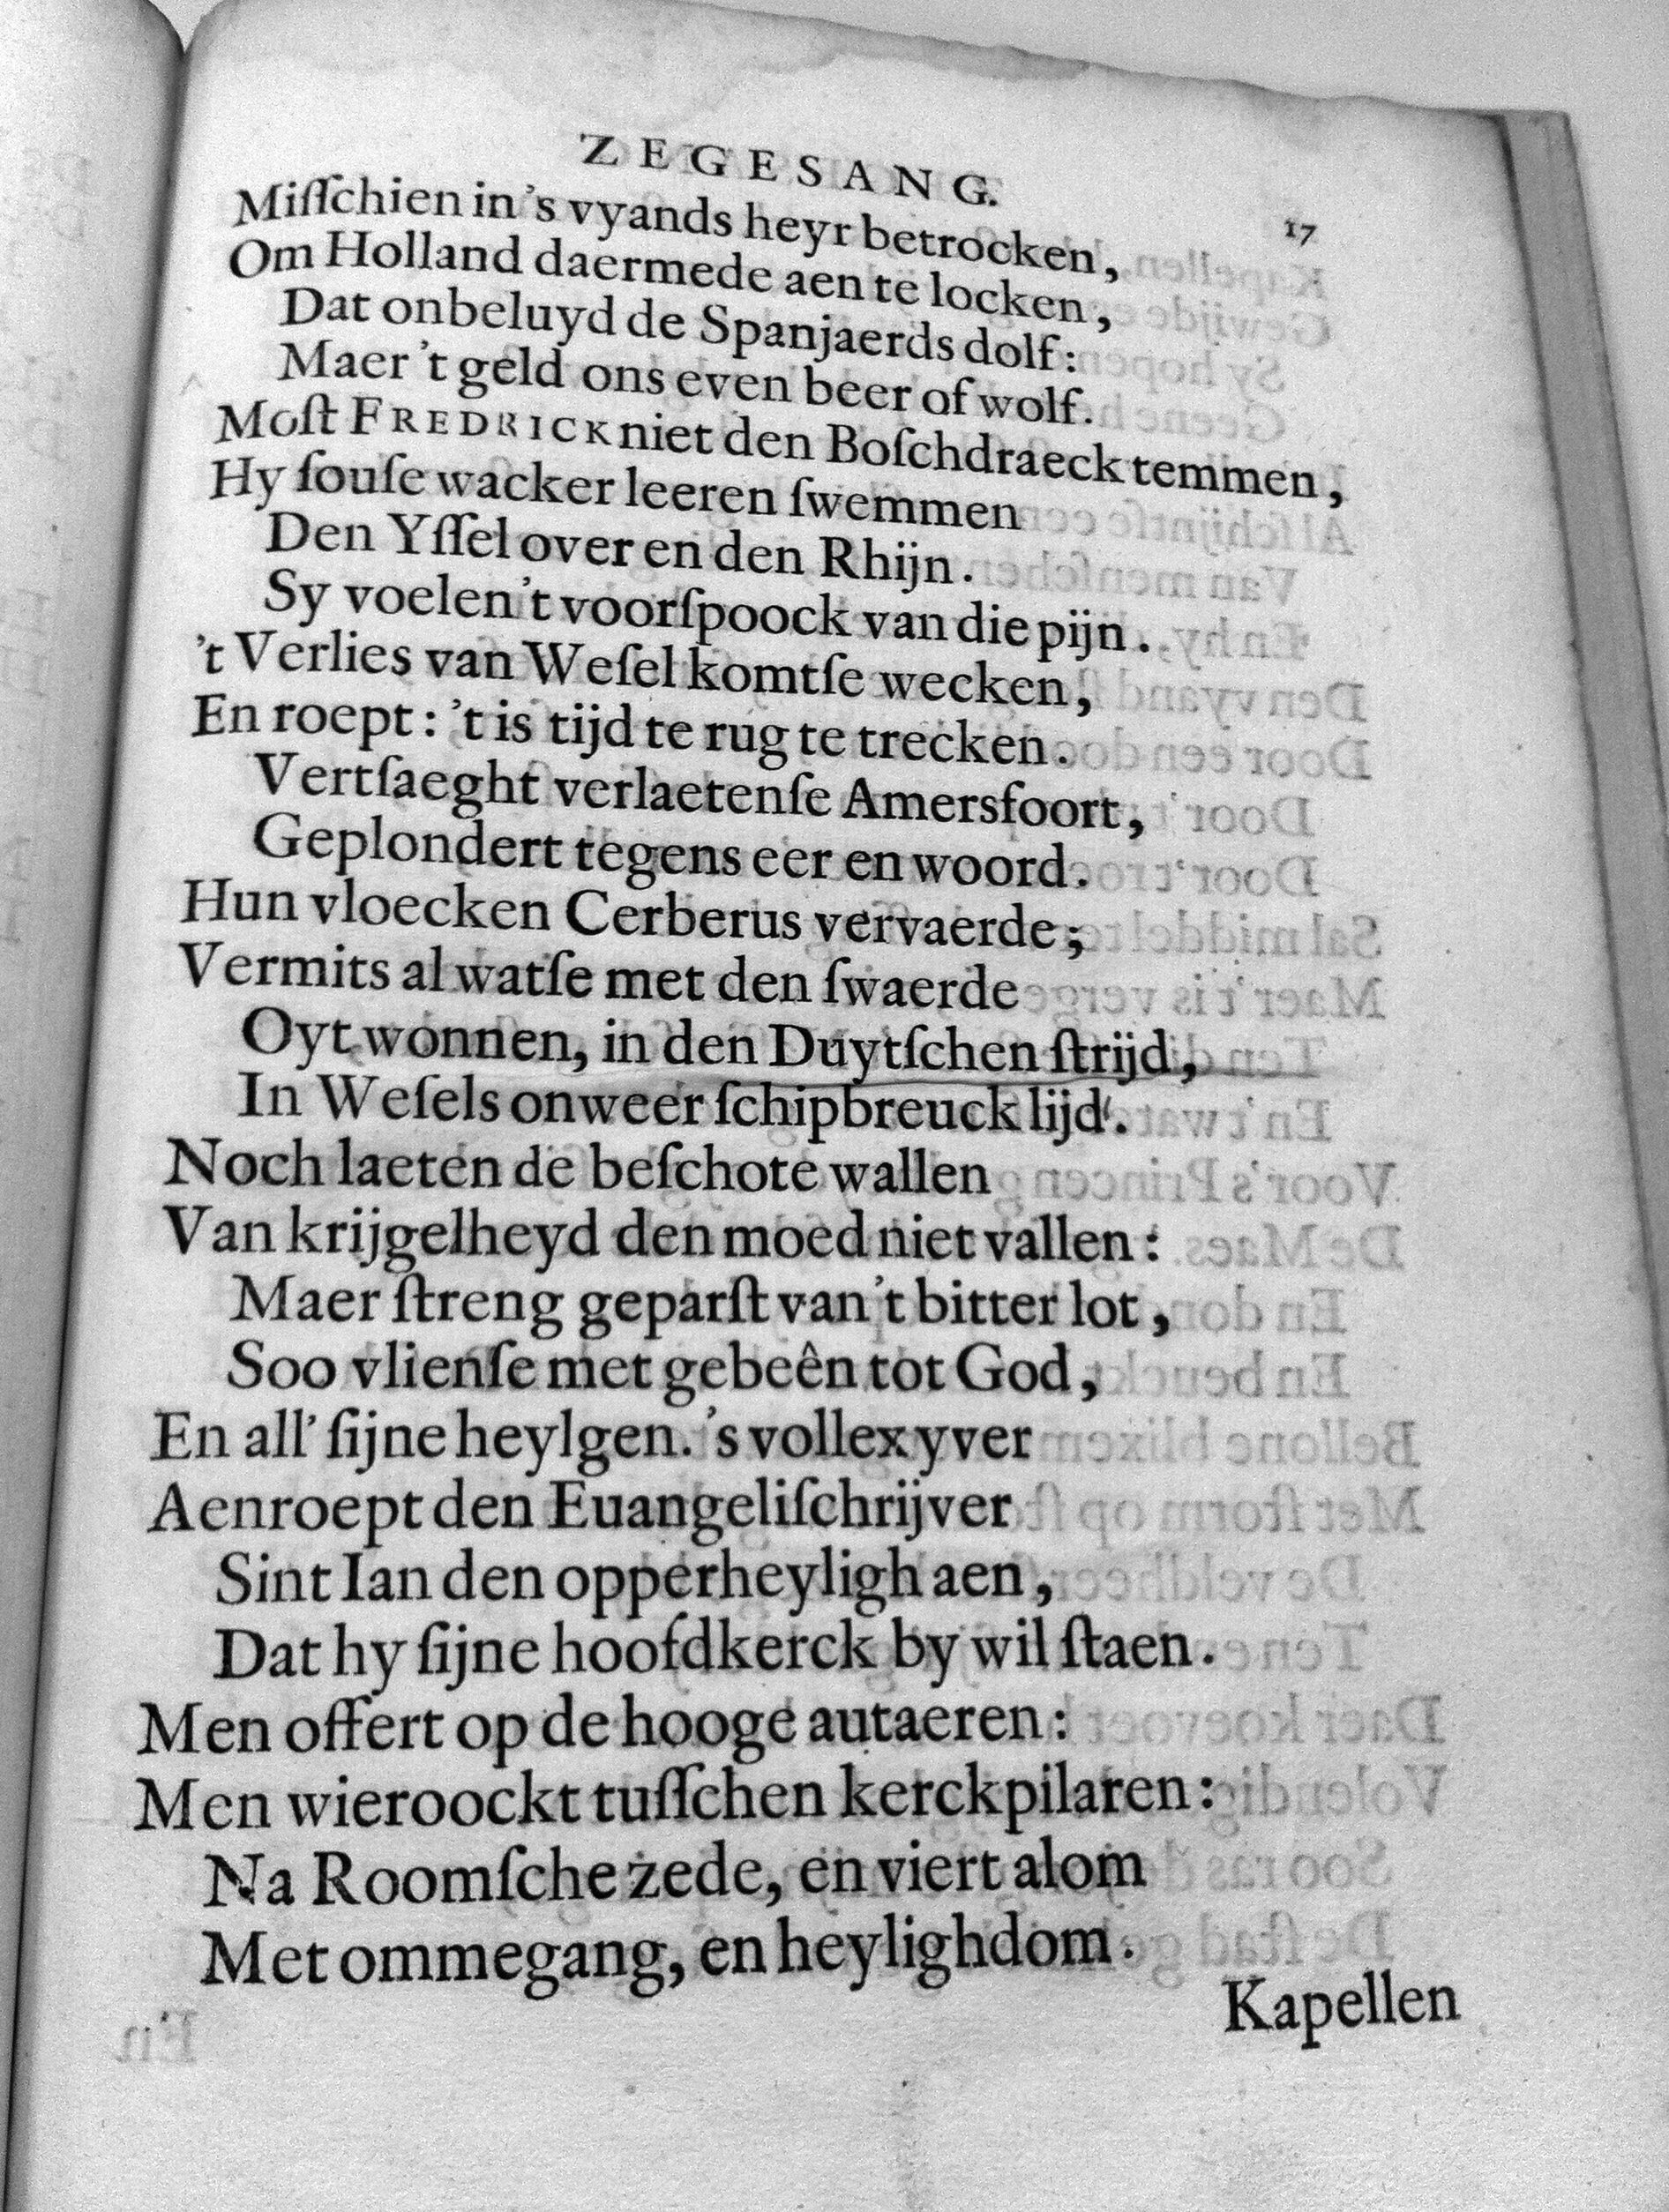 ZEGESANG. 17
Miſſchien in 's vyands heyr betrocken,
Om Holland daermede aen te locken,
Dat onbeluyd de Spanjaerds dolf:
Maer 't geld ons even beer of wolf.
Moſt FREDRICK niet den Boſchdraeck temmen,
Hy ſouſe wacker leeren ſwemmen
Den Yſſel over en den Rhijn.
Sy voelen 't voorſpoock van die pijn.
't Verlies van Weſel komtſe wecken,
En roept: 't is tijd te rug te trecken.
Vertſaeght verlaetenſe Amersfoort,
Geplondert tegens eer en woord.
Hun vloecken Cerberus vervaerde;
Vermits al watſe met den ſwaerde
Oyt wonnen, in den Duytſchen ſtrijd,
In Weſels onweer ſchipbreuck lijd.
Noch laeten de beſchote wallen
Van krijgelheyd den moed niet vallen:
Maer ſtreng geparſt van 't bitter lot,
Soo vlienſe met gebeên tot God,
En all' ſijne heylgen. 's vollex yver
Aenroept den Euangeliſchrijver
Sint Ian den opperheyligh aen,
Dat hy ſijne hoofdkerck by wil ſtaen.
Men offert op de hooge autaeren:
Men wieroockt tuſſchen kerckpilaren:
Na Roomſche zede, en viert alom
Met ommegang, en heylighdom.
Kapellen